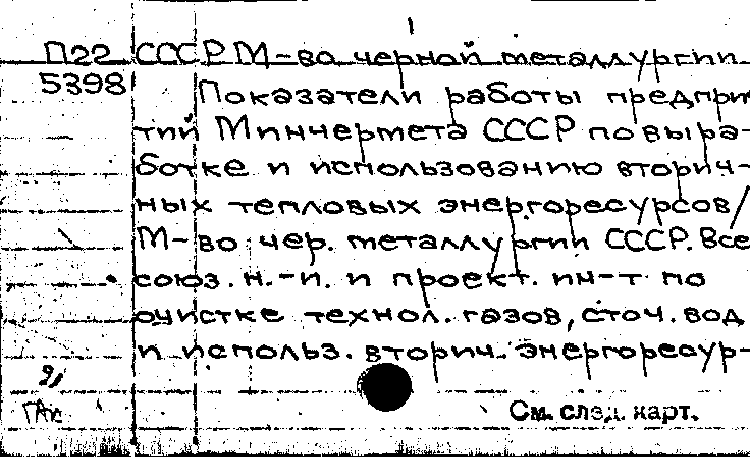 1
П22 СССР М-во черной металлургии
5398
Показатели работы предприя
тий Минчермета СССР по выра-
ботке и использованию вторич-
ных тепловых энергоресурсов/
М-во чер. металлургии СССР. Все
союз. н.-и. и проект. ин-т по
очистке технол. газов, сточ. вод
и использ. вторич. энергоресур-
См. след. карт.